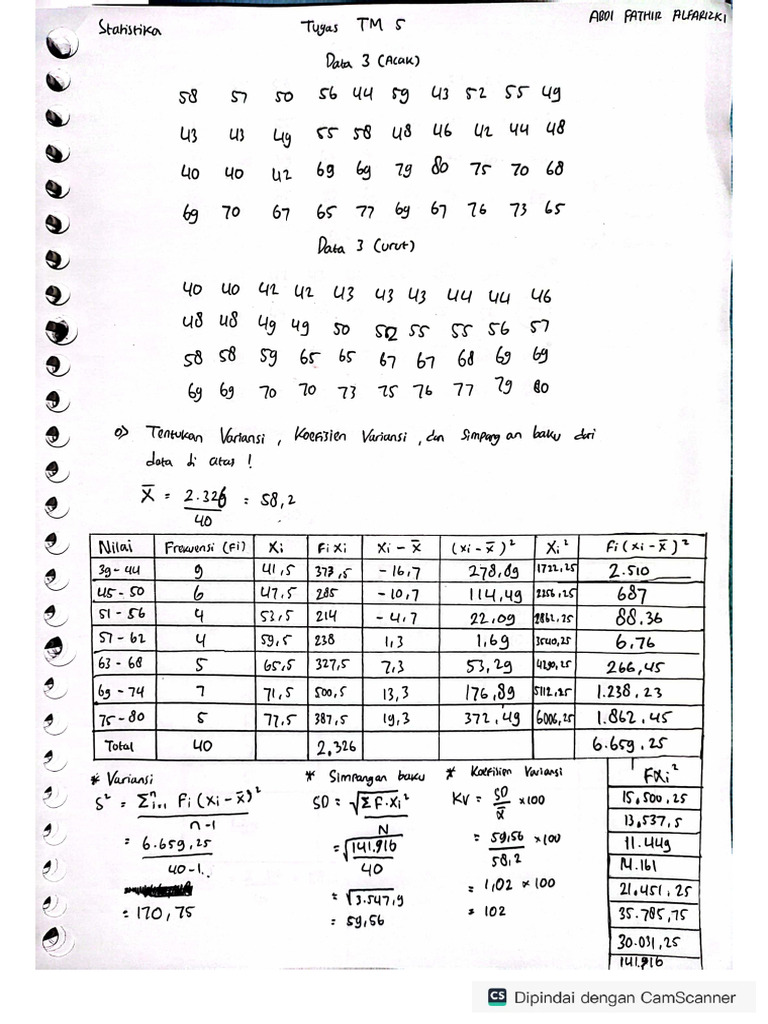 ABDI FATHIR ALFARIZKI
Statistika Tugas TM 5
Data 3 (Acak)
58 57 50 56 44 59 43 52 55 49
43 43 49 55 58 48 46 42 44 48
40 40 42 69 69 79 80 75 70 68
69 70 67 65 77 69 67 76 73 65
Data 3 (urut)
40 40 42 42 43 43 43 44 44 46
48 48 49 49 50 52 55 55 56 57
58 58 59 65 65 67 67 68 69 69
69 69 70 70 73 75 76 77 79 80
Tentukan Variansi, Koefisien Variansi, dan Simpangan baku dari
data di atas !
X̄ = 2.326 / 40 = 58,2
Nilai Frekuensi (Fi) Xi FiXi Xi - X̄ (xi - x̄)² Xi² Fi(xi - x̄)²
39 - 44 9 41,5 373,5 - 16,7 278,89 1722,25 2.510
45 - 50 6 47,5 285 - 10,7 114,49 2256,25 687
51 - 56 4 53,5 214 - 4,7 22,09 2862,25 88.36
57 - 62 4 59,5 238 1,3 1,69 3540,25 6,76
63 - 68 5 65,5 327,5 7,3 53,29 4290,25 266,45
69 - 74 7 71,5 500,5 13,3 176,89 5112,25 1.238,23
75 - 80 5 77,5 387,5 19,3 372,49 6006,25 1.862,45
Total 40 2.326 6.659,25
* Variansi
S² = Σⁿᵢ₌₁ Fi (Xi - x̄)² / n-1
= 6.659,25 / 40-1
= 170,75
* Simpangan baku
SD = √Σ F.Xi² / N
= √141.916 / 40
= √3.547,9
= 59,56
* Koefisien Variansi
KV = SD / x̄ x100
= 59,56 / 58,2 x100
= 1,02 x 100
= 102
FXi²
15.500,25
13.537,5
11.449
14.161
21.451,25
35.785,75
30.031,25
141.916
CS Dipindai dengan CamScanner